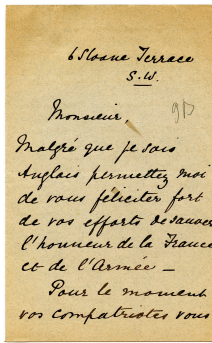 6 Sloane Terrace
S.W.
Monsieur,
Malgré que je sois
Anglais permettez moi
de vous féliciter fort
de vos efforts de sauver
l'honneur de la France
et de l'Armée —
Pour le moment
vos compatriotes vous